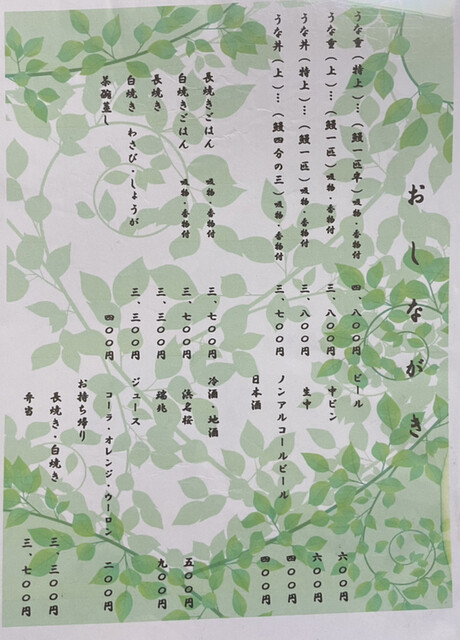 おしながき
うな重(特上)…(鰻一匹半)吸物・香物付 四、八〇〇円
うな重(上)…(鰻一匹)吸物・香物付 三、八〇〇円
うな丼(特上)…(鰻一匹)吸物・香物付 三、八〇〇円
うな丼(上)…(鰻四分の三)吸物・香物付 三、七〇〇円
長焼きごはん 吸物・香物付 三、七〇〇円
白焼きごはん 吸物・香物付 三、七〇〇円
長焼き 三、三〇〇円
白焼き わさび・しょうが 三、三〇〇円
茶碗蒸し 四〇〇円
ビール
中ビン 六〇〇円
生中 六〇〇円
ノンアルコールビール 四〇〇円
日本酒 四〇〇円
冷酒・地酒
浜名桜 五〇〇円
瑞兆 九〇〇円
ジュース
コーラ・オレンジ・ウーロン 二〇〇円
お持ち帰り
長焼き・白焼き 三、三〇〇円
弁当 三、七〇〇円